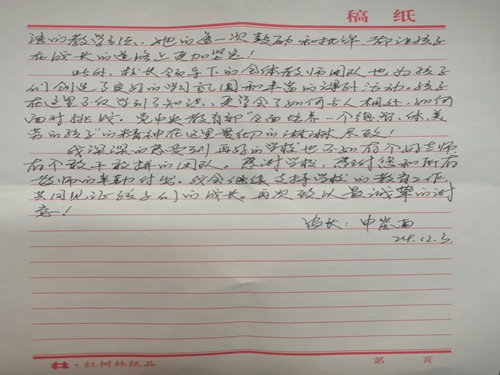 稿 纸
的教学方法，她的每一次鼓励和批评，都让孩子
在成长的道路上更加坚定！
此外，校长领导下的全体教师团队也为孩子
们创造了良好的学习氛围和丰富的课外活动，孩子
在这里不仅学到知识，更学会了如何与人相处，如何
面对挑战。党中央教育部"全面培养一个德、智、体、美、
劳的孩子"的精神在这里展现的淋淋尽致！
我深深的感受到再好的学校也不如有个好老师
有个敢干敢拼的团队。感谢学校，感谢 和所有
教师的辛勤付出。我会继续支持学校的教育工作，
共同见证孩子们的成长。再次致以最诚挚的谢
意！
家长：申
24.12.3
红树林纸品 第 页